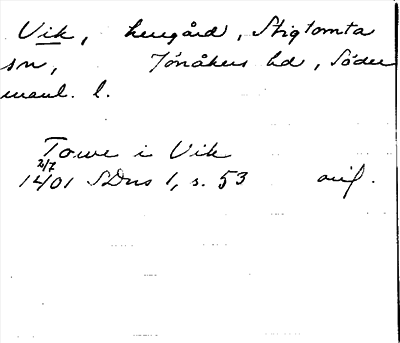 Vik, herrgård, Stigtomta
sn, Jönåkers hd, Söder
manl. l.
Towe i Vik
2/7
1401 SDns 1, s. 53 orig.